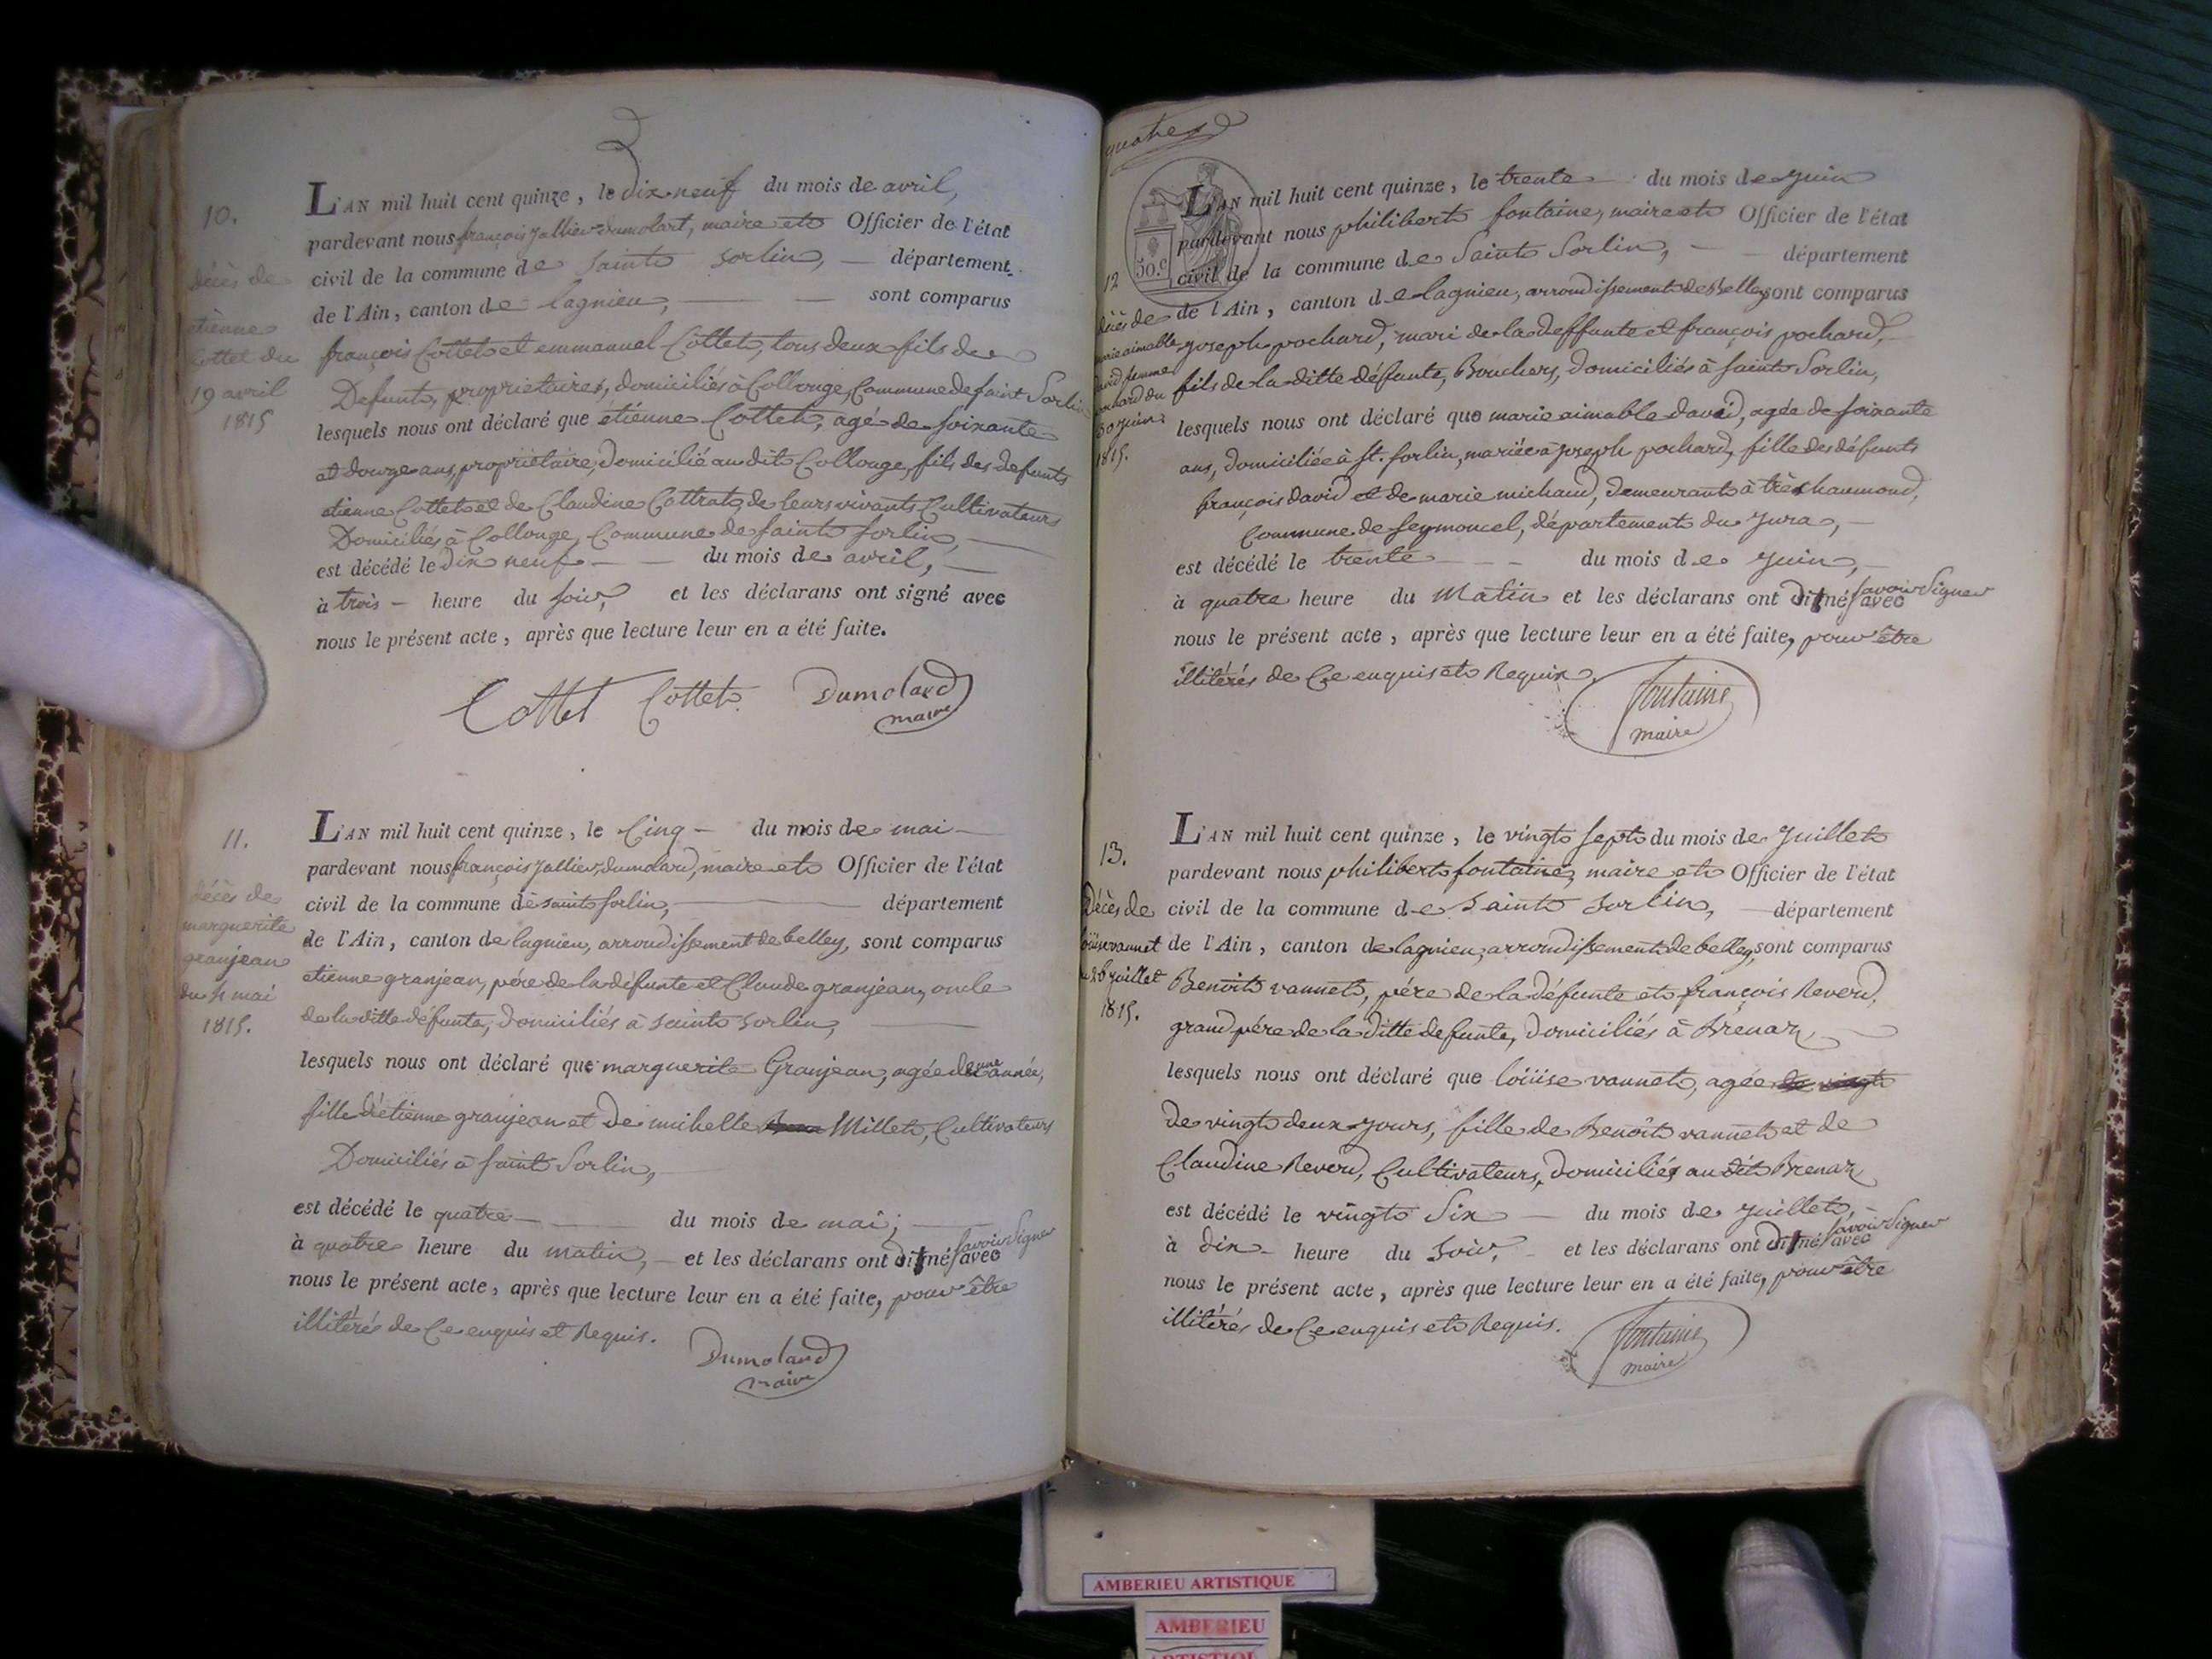 3
10.
décès de
etienne
Cottet du
19 avril
1815
L'AN mil huit cent quinze, le dix neuf du mois de avril,
pardevant nous françois Jallier Dumolart, maire et Officier de l'état
civil de la commune de Saint Sorlin, département
de l'Ain, canton de Lagnieu, sont comparus
françois Cottet et emmanuel Cottet, tous deux fils de
Defunt, propriétaires, domiciliés à Collonge, Commune de saint Sorlin
lesquels nous ont déclaré que etienne Cottet, agé de soixante
et douze ans, propriétaire, Domicilié au dit Collonge, fils des defunts
etienne Cottet et de Claudine Cottrat, de leurs vivants Cultivateurs
Domiciliés à Collonge, Commune de saint Sorlin,
est décédé le dix neuf du mois de avril,
à trois heure du soir, et les déclarans ont signé avec
nous le présent acte, après que lecture leur en a été faite.
Cottet Cottet Dumolard
maire
11.
décès de
marguerite
granjean
du 4 mai
1815.
L'AN mil huit cent quinze, le Cinq du mois de mai
pardevant nous françois Jallier, dumolard, maire et Officier de l'état
civil de la commune de saint Sorlin, département
de l'Ain, canton de lagnieu, arrondissement de belley, sont comparus
etienne granjean, père de la défunte et Claude granjean, oncle
de la ditte défunte, domiciliés à saint Sorlin,
lesquels nous ont déclaré que marguerite Granjean, agée de une année,
fille d'étienne granjean et de michelle Millet, Cultivateurs
Domiciliés à saint Sorlin,
est décédé le quatre du mois de mai;
à quatre heure du matin, et les déclarans ont dit né savoir signer avec
nous le présent acte, après que lecture leur en a été faite, pour être
illitérés de Ce enquis et Requis.
Dumolard
maire
quatre
50.C
12
décès de
marie aimable
david femme
pochard du
30 juin
1815.
L'AN mil huit cent quinze, le trente du mois de juin
pardevant nous philibert fontaine, maire et Officier de l'état
civil de la commune de Saint Sorlin, département
de l'Ain, canton de lagnieu, arrondissement de Belley sont comparus
joseph pochard, mari de la deffunte et françois pochard,
fils de la ditte défunte, Bouchers, Domiciliés à saint Sorlin,
lesquels nous ont déclaré que marie aimable david, agée de soixante
ans, domiciliée à st. sorlin, mariée à joseph pochard, fille des défunts
françois david et de marie michaud, demeurant à très haumond,
Commune de Seymoncel, département du Jura,
est décédé le trente du mois de juin,
à quatre heure du matin et les déclarans ont dit né savoir signer avec
nous le présent acte, après que lecture leur en a été faite, pour être
illitérés de Ce enquis et Requis.
fontaine
maire
13.
Décès de
Loüise vannet
du 26 juillet
1815.
L'AN mil huit cent quinze, le vingt sept du mois de juillet
pardevant nous philibert fontaine, maire et Officier de l'état
civil de la commune de Saint Sorlin, département
de l'Ain, canton de lagnieu, arrondissement de belley, sont comparus
Benoit vannet, père de la défunte et françois Reverd,
grand père de la ditte defunte, domiciliés à Brenaz,
lesquels nous ont déclaré que Loüise vannet, agée de vingt
de vingt deux jours, fille de Benoît vannet et de
Claudine Reverd, Cultivateurs, domiciliés au dit Brenaz
est décédé le vingt Six du mois de juillet,
à dix heure du soir, et les déclarans ont dit né savoir signer avec
nous le présent acte, après que lecture leur en a été faite, pour être
illitérés de Ce enquis et Requis.
fontaine
maire
AMBERIEU ARTISTIQUE
AMBERIEU
ARTISTIQUE